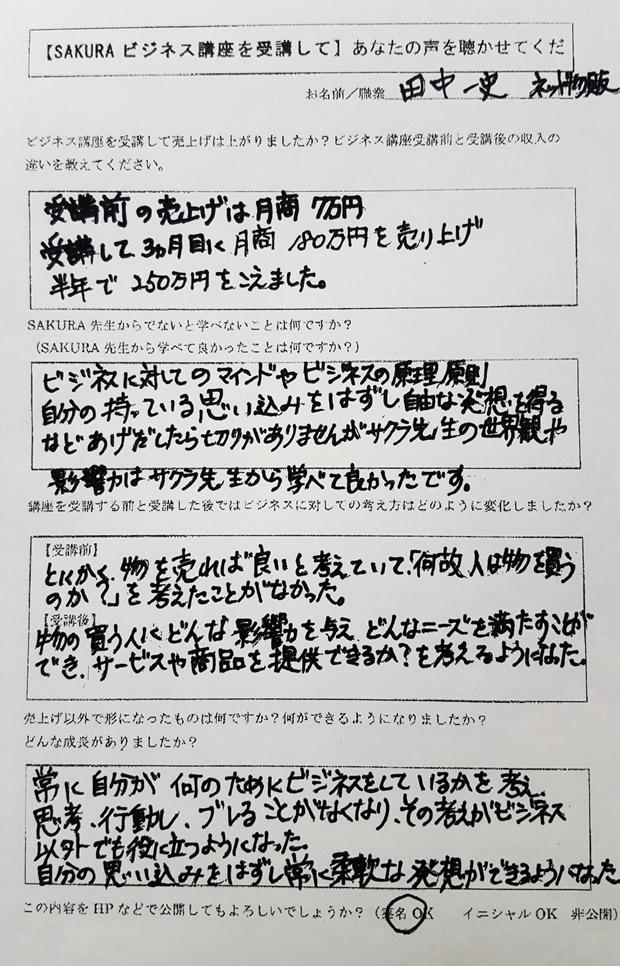 【SAKURA ビジネス講座を受講して】あなたの声を聴かせてくだ
お名前／職業 田中一史 ネット物販
ビジネス講座を受講して売上げは上がりましたか？ビジネス講座受講前と受講後の収入の
違いを教えてください。
受講前の売上げは月商 7万円
受講して3ヵ月目に月商 180万円を売り上げ
半年で 250万円をこえました。
SAKURA 先生からでないと学べないことは何ですか？
（SAKURA 先生から学べて良かったことは何ですか？）
ビジネスに対してのマインドやビジネスの原理原則
自分の持っている思い込みをはずし自由な発想を得る
などあげだしたら切りがありませんがサクラ先生の世界観や
影響力はサクラ先生から学べて良かったです。
講座を受講する前と受講した後ではビジネスに対しての考え方はどのように変化しましたか？
【受講前】
とにかく、物を売れば良いと考えていて、「何故人は物を買う
のか？」を考えたことがなかった。
【受講後】
物の買う人にどんな影響力を与え どんなニーズを満たすことが
でき、サービスや商品を提供できるか？を考えるようになった。
売上げ以外で形になったものは何ですか？何ができるようになりましたか？
どんな成長がありましたか？
常に自分が何のためにビジネスをしているかを考え
思考、行動し、ブレることがなくなり、その考えがビジネス
以外でも役に立つようになった。
自分の思い込みをはずし常に柔軟な発想ができるようになった
この内容を HP などで公開してもよろしいでしょうか？（実名 OK　イニシャル OK　非公開）